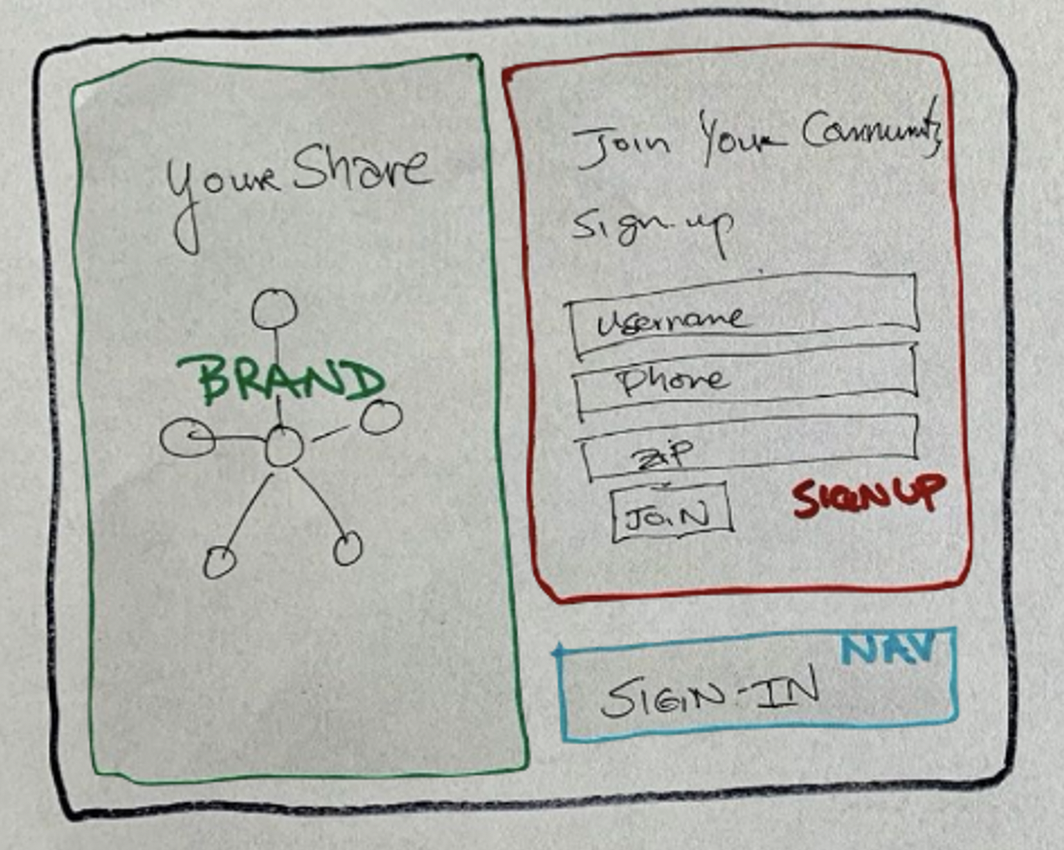 Your Share
BRAND
Join Your Community
Sign-up
Username
Phone
Zip
JOIN
SIGNUP
NAV
SIGN-IN